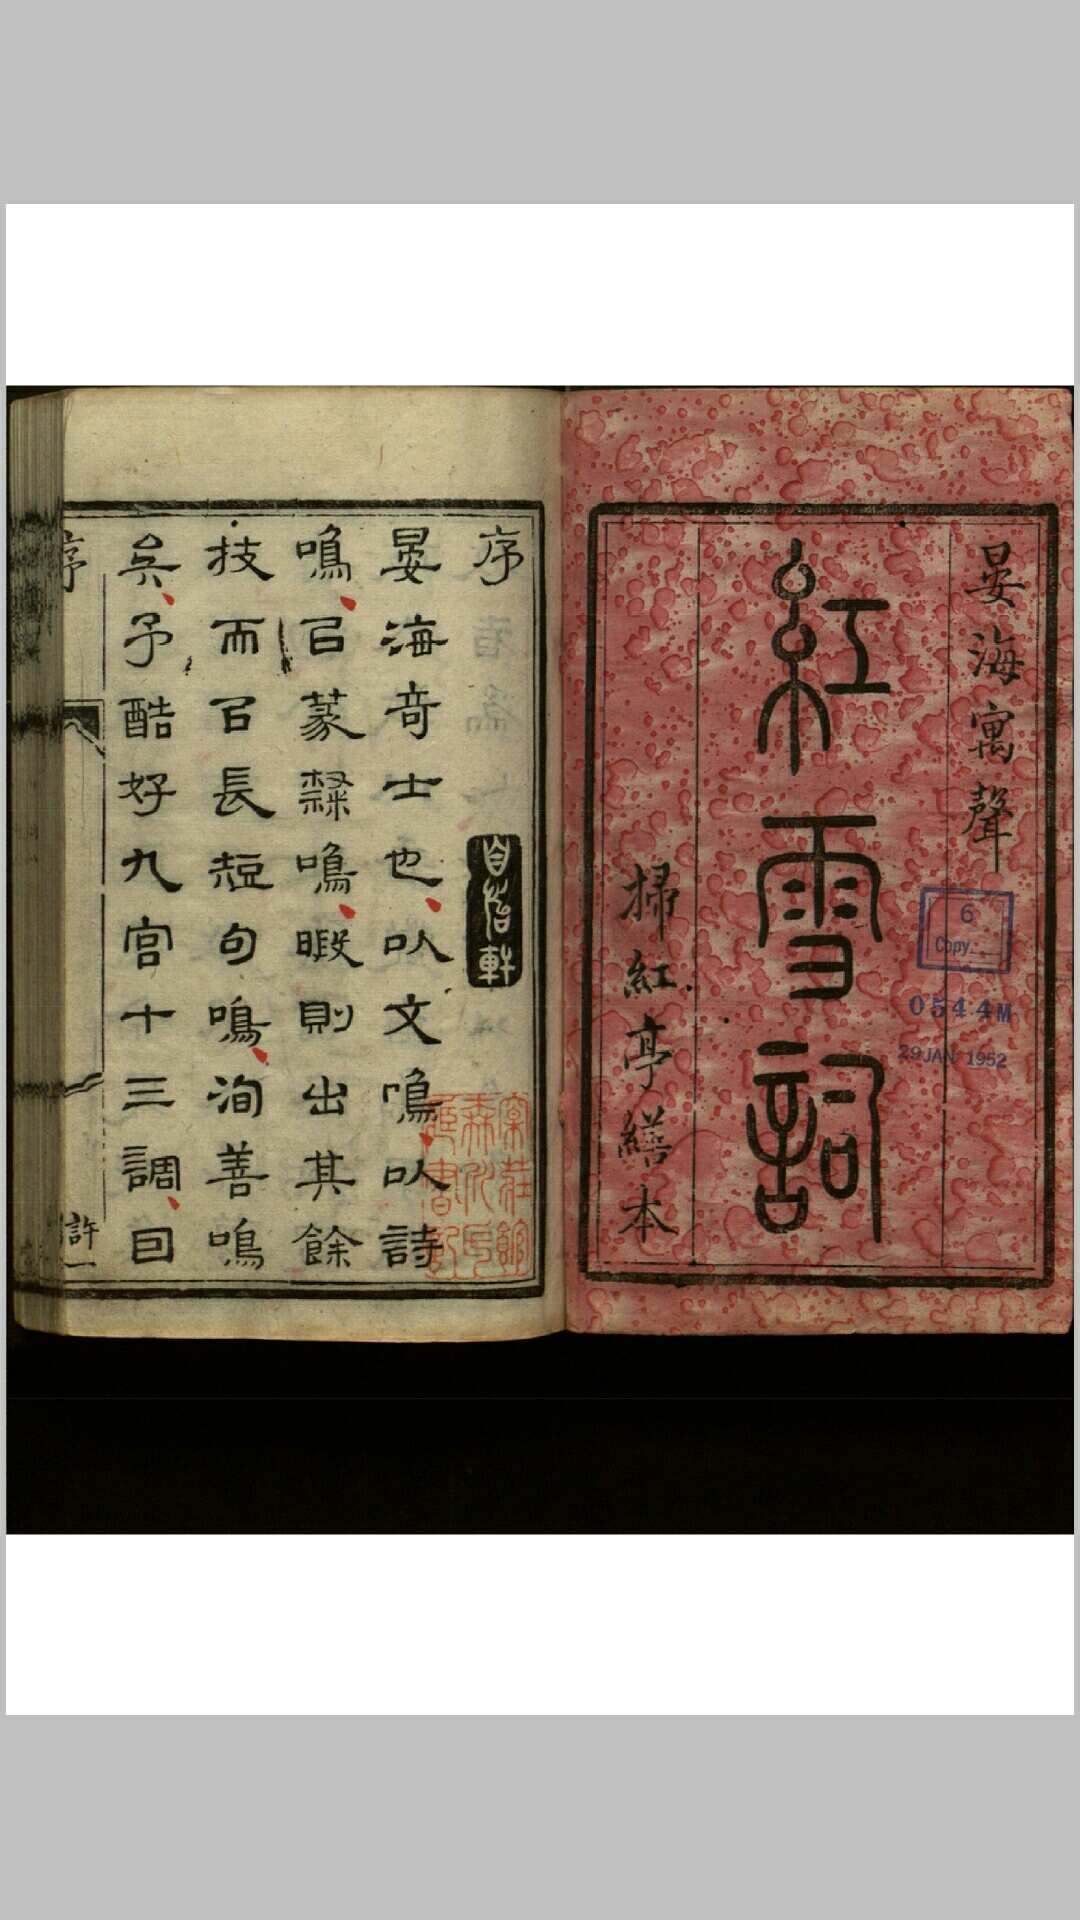 晏海寓聲
紅雪詞
掃紅亭繕本
6
Copy
0544M
29 JAN 1952
序
自怡軒
晏海奇士也以文鳴以詩
鳴㠯篆隸鳴暇則出其餘
技而㠯長短句鳴洵善鳴
矣予酷好九宮十三調囙
序
許一